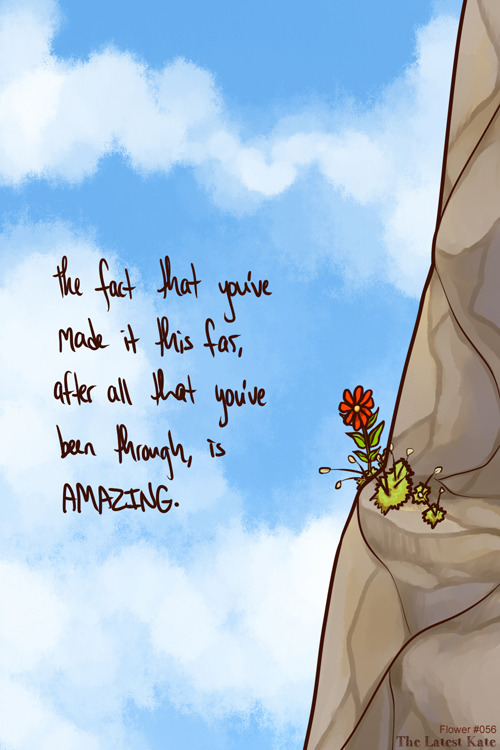 the fact that you've
made it this far,
after all that you've
been through, is
AMAZING.
Flower #056
The Latest Kate